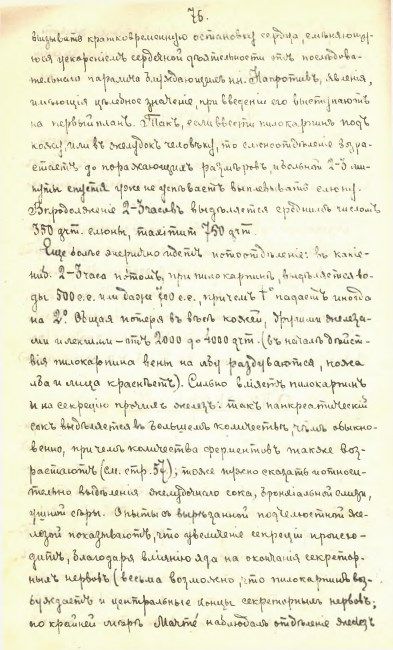 75.
вызывать кратковременную остановку сердца, смѣняющую-
юся ускореніемъ сердечной дѣятельности отъ послѣдова-
тельнаго паралича блуждающихъ нн. Напротивъ, явленія,
имѣющія цѣлебное значеніе, при введеніи его выступаютъ
на первый планъ. Такъ, если ввести пилокарпинъ подъ
кожу, или въ желудокъ человѣку, то слюноотдѣленіе возра-
стаетъ до поражающихъ размѣровъ, и больной 2-3 ми-
нуты спустя уже не успѣваетъ выплевывать слюну.
Впродолженіе 2-3 часовъ выдѣляется среднимъ числомъ
350 grm. слюны, maximum 750 grm.
Еще болѣе энергично идетъ потоотдѣленіе: въ какіе-
ниб. 2-3 часа потомъ, при пилокарпинѣ, выдѣляется во-
ды 500 с.с. или даже 700 с.с., причемъ t° падаетъ иногда
на 2°. Общая потеря въ вѣсѣ кожей, другими желѣза-
ми и легкими — отъ 2000 до 4000 grm. (въ началѣ дѣйст-
вія пилокарпина вены на лбу раздуваются, кожа
лба и лица краснѣетъ). Сильно вліяетъ пилокарпинъ
и на секрецію прочихъ железъ: такъ панкреатическій
сокъ выдѣляется въ большемъ количествѣ, чѣмъ обыкно-
венно, при чемъ количества ферментовъ также воз-
растаютъ (см. стр. 57); тоже нужно сказать и относи-
тельно выдѣленія желудочнаго сока, бронхіальной слизи,
ушной сѣры. Опыты съ вырѣзанной подчелюстной же-
лезой показываютъ, что увеличеніе секреціи происхо-
дитъ, благодаря вліянію яда на окончанія секретор-
ныхъ нервовъ (весьма возможно, что пилокарпинъ воз-
буждаетъ и центральные концы секреторныхъ нервовъ;
по крайней мѣрѣ Marmé наблюдалъ отдѣленіе железъ